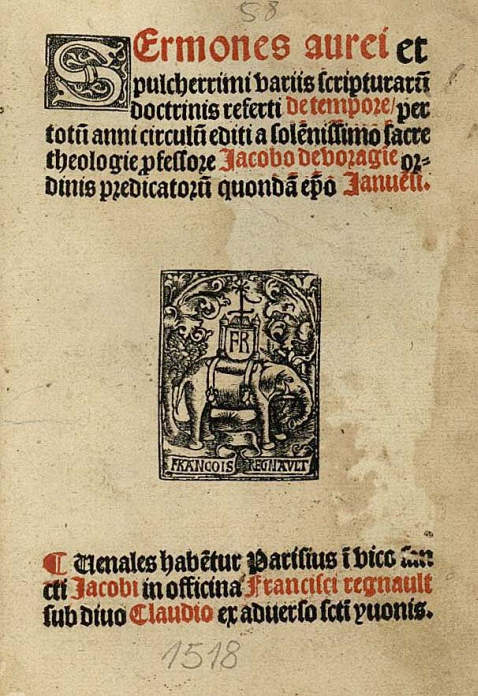 58
Sermones aurei et
pulcherrimi variis scripturarũ
doctrinis referti de tempore/per
totũ anni circulũ editi a solẽnissimo sacre
theologie ꝓfessore Jacobo de voragie or⸗
dinis predicatorũ quondã ep̃o Januẽñ.
FR
FRANCOIS REGNAULT
¶ Uenales habẽtur Parisius ĩ vico san
cti Jacobi in officina Francisci regnault
sub diuo Claudio ex aduerso sct̃i yuonis.
1518